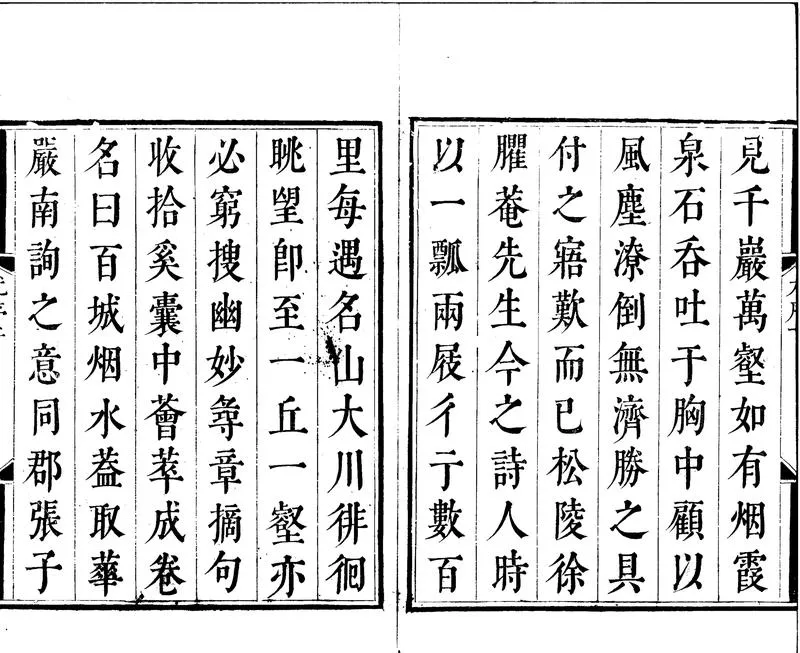 見千巖萬壑如有烟霞
泉石呑吐于胸中顧以
風塵潦倒無濟勝之具
付之寤歎而已松陵徐
臞菴先生今之詩人時
以一瓢兩屐彳亍數百
里每遇名山大川徘徊
眺望卽至一丘一壑亦
必窮搜幽妙尋章摘句
收拾奚囊中薈萃成卷
名曰百城烟水葢取華
嚴南詢之意同郡張子